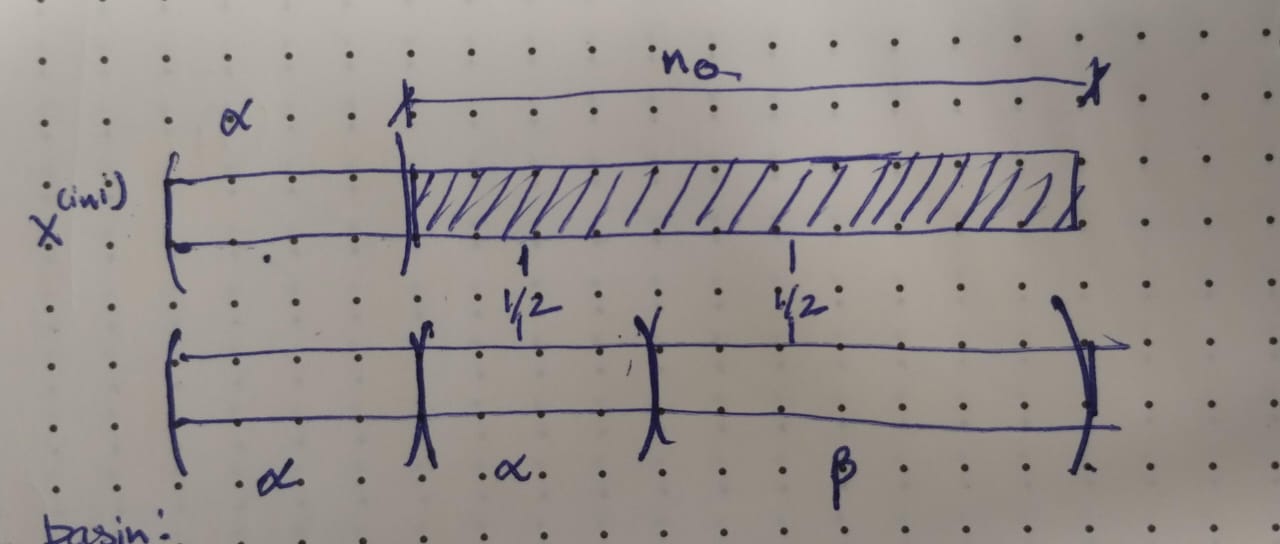 nθ
α
X^(ini)
1/2 1/2
α α β
basin: